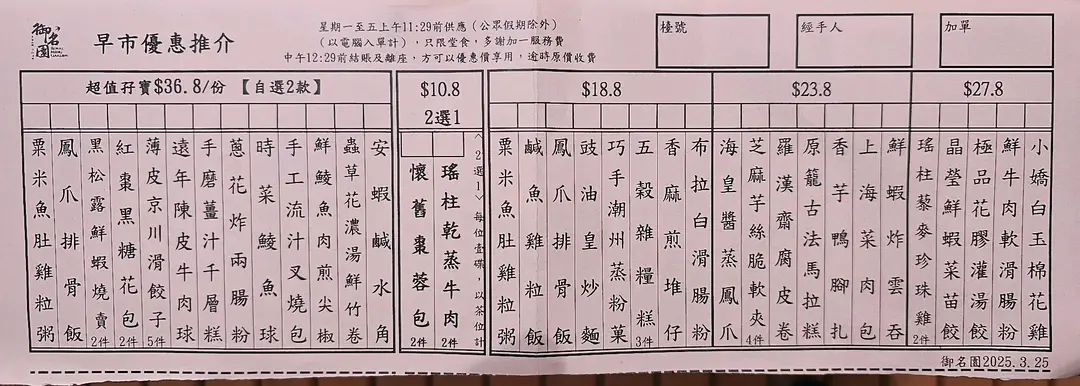 御名園
早市優惠推介
星期一至五上午11:29前供應（公眾假期除外）
（以電腦入單計），只限堂食，多謝加一服務費
中午12:29前結賬及離座，方可以優惠價享用，逾時原價收費
檯號
經手人
加單
超值孖寶$36.8/份 【自選2款】
安蝦鹹水角
蟲草花濃湯鮮竹卷
鮮鯪魚肉煎尖椒
手工流汁叉燒包
時菜鯪魚球
蔥花炸兩腸粉
手磨薑汁千層糕
遠年陳皮牛肉球
薄皮京川滑餃子 5件
紅棗黑糖花包 2件
黑松露鮮蝦燒賣 2件
鳳爪排骨飯
粟米魚肚雞粒粥
$10.8
2選1
瑤柱乾蒸牛肉 2件
懷舊棗蓉包 2件
〈2選1〉每位壹碟，以茶位計
$18.8
布拉白滑腸粉
香麻煎堆仔
五穀雜糧糕 3件
巧手潮州蒸粉菓
豉油皇炒麵
鳳爪排骨飯
鹹魚雞粒飯
粟米魚肚雞粒粥
$23.8
鮮蝦炸雲吞
上海菜肉包
香芋鴨腳扎
原籠古法馬拉糕
羅漢齋腐皮卷
芝麻芋絲脆軟夾 4件
海皇醬蒸鳳爪
$27.8
小嬌白玉棉花雞
鮮牛肉軟滑腸粉
極品花膠灌湯餃
晶瑩鮮蝦菜苗餃
瑤柱藜麥珍珠雞 2件
御名園2025.3.25